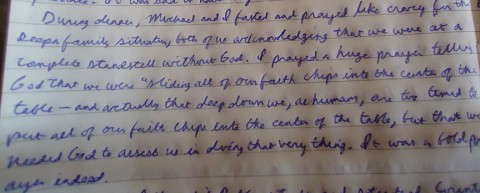 During dinner, Michael and I fasted and prayed like crazy for the
family situation, both of us acknowledging that we were at a
complete standstill without God. I prayed a huge prayer telling
God that we were "sliding all of our faith chips into the center of the
table — and actually that deep down we, as humans, are too timid to
put all of our faith chips into the center of the table, but that we
needed God to assist us in doing that very thing. It was a bold pr
ayer indeed.